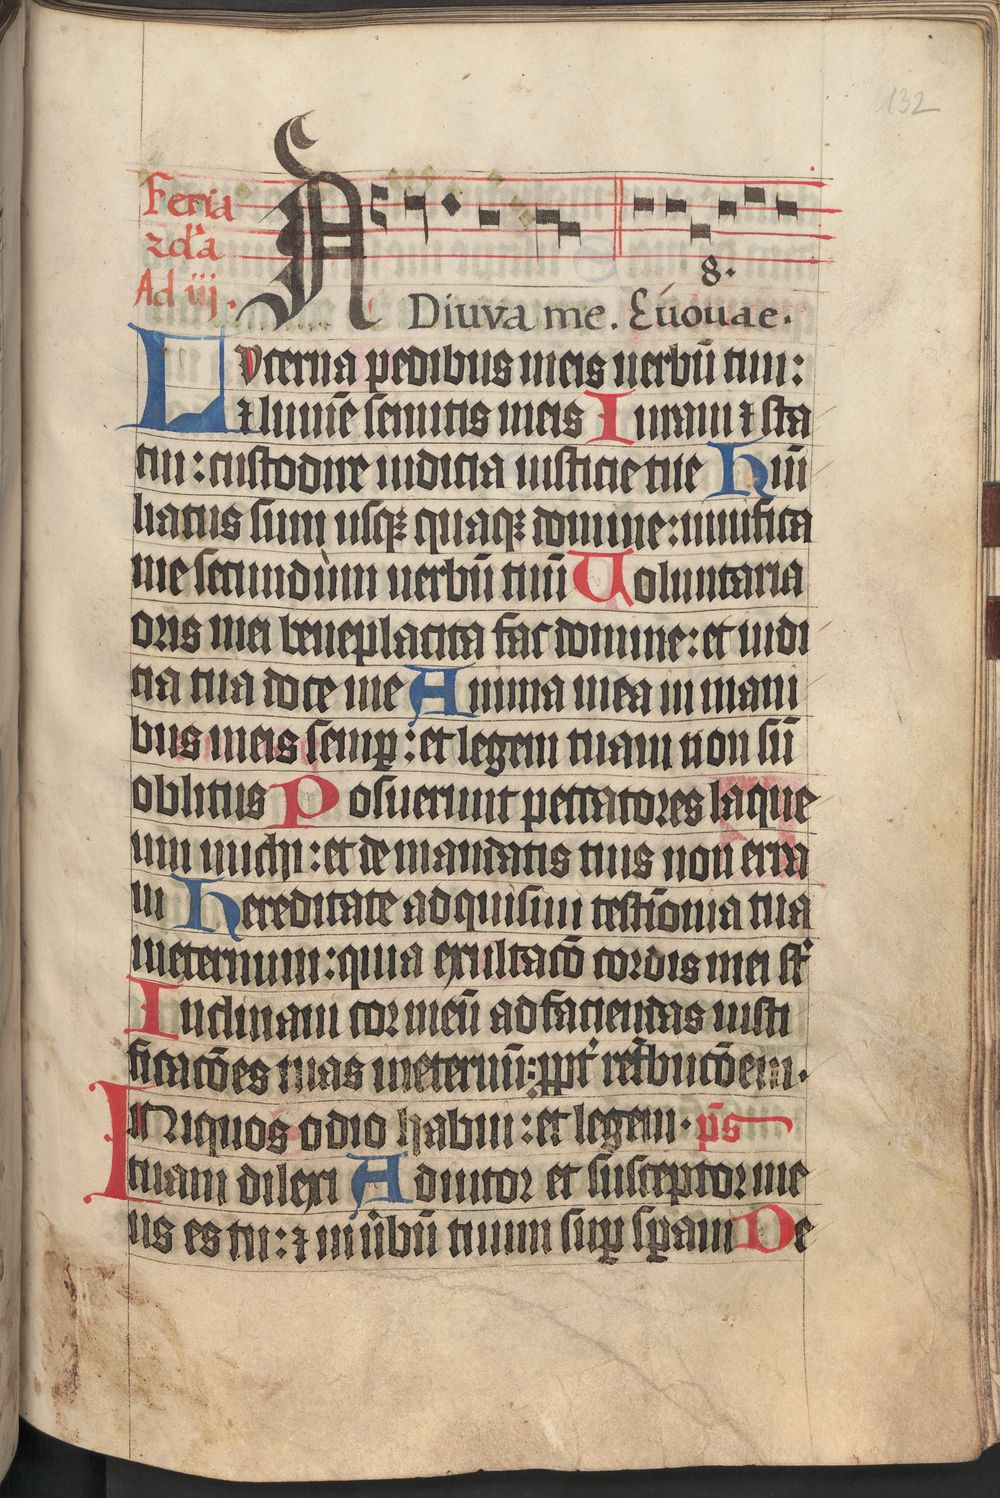 132
Feria
2da
Ad iij.
8.
ADiuva me. Euouae.
Lucerna pedibus meis uerbū tuu:
⁊ lumē semitis meis Iuraui ⁊ sta
tui: custodire iudicia iusticie tue Hūi
liatus sum usqꝫ quaqꝫ domine: uiuifica
me secundum uerbū tuū Uoluntaria
oris mei beneplacita fac domine: et iudi
cia tua doce me Anima mea in mani
bus meis semꝑ: et legem tuam non sū
oblitus Posuerunt peccatores laque
um michi: et de mandatis tuis non erra
ui Hereditate adquisiui testīonia tua
ineternum: quia exultacō cordis mei st̄
Inclinaui cor meū ad faciendas iusti
ficacōes tuas ineternū: ꝓpt̄ ret̄bucōem.
INiquos odio habui: et legem. p̄s
tuam dilexi Adiutor et susceptor me
us es tu: ⁊ in ūbū tuum suꝑ sꝑaui De